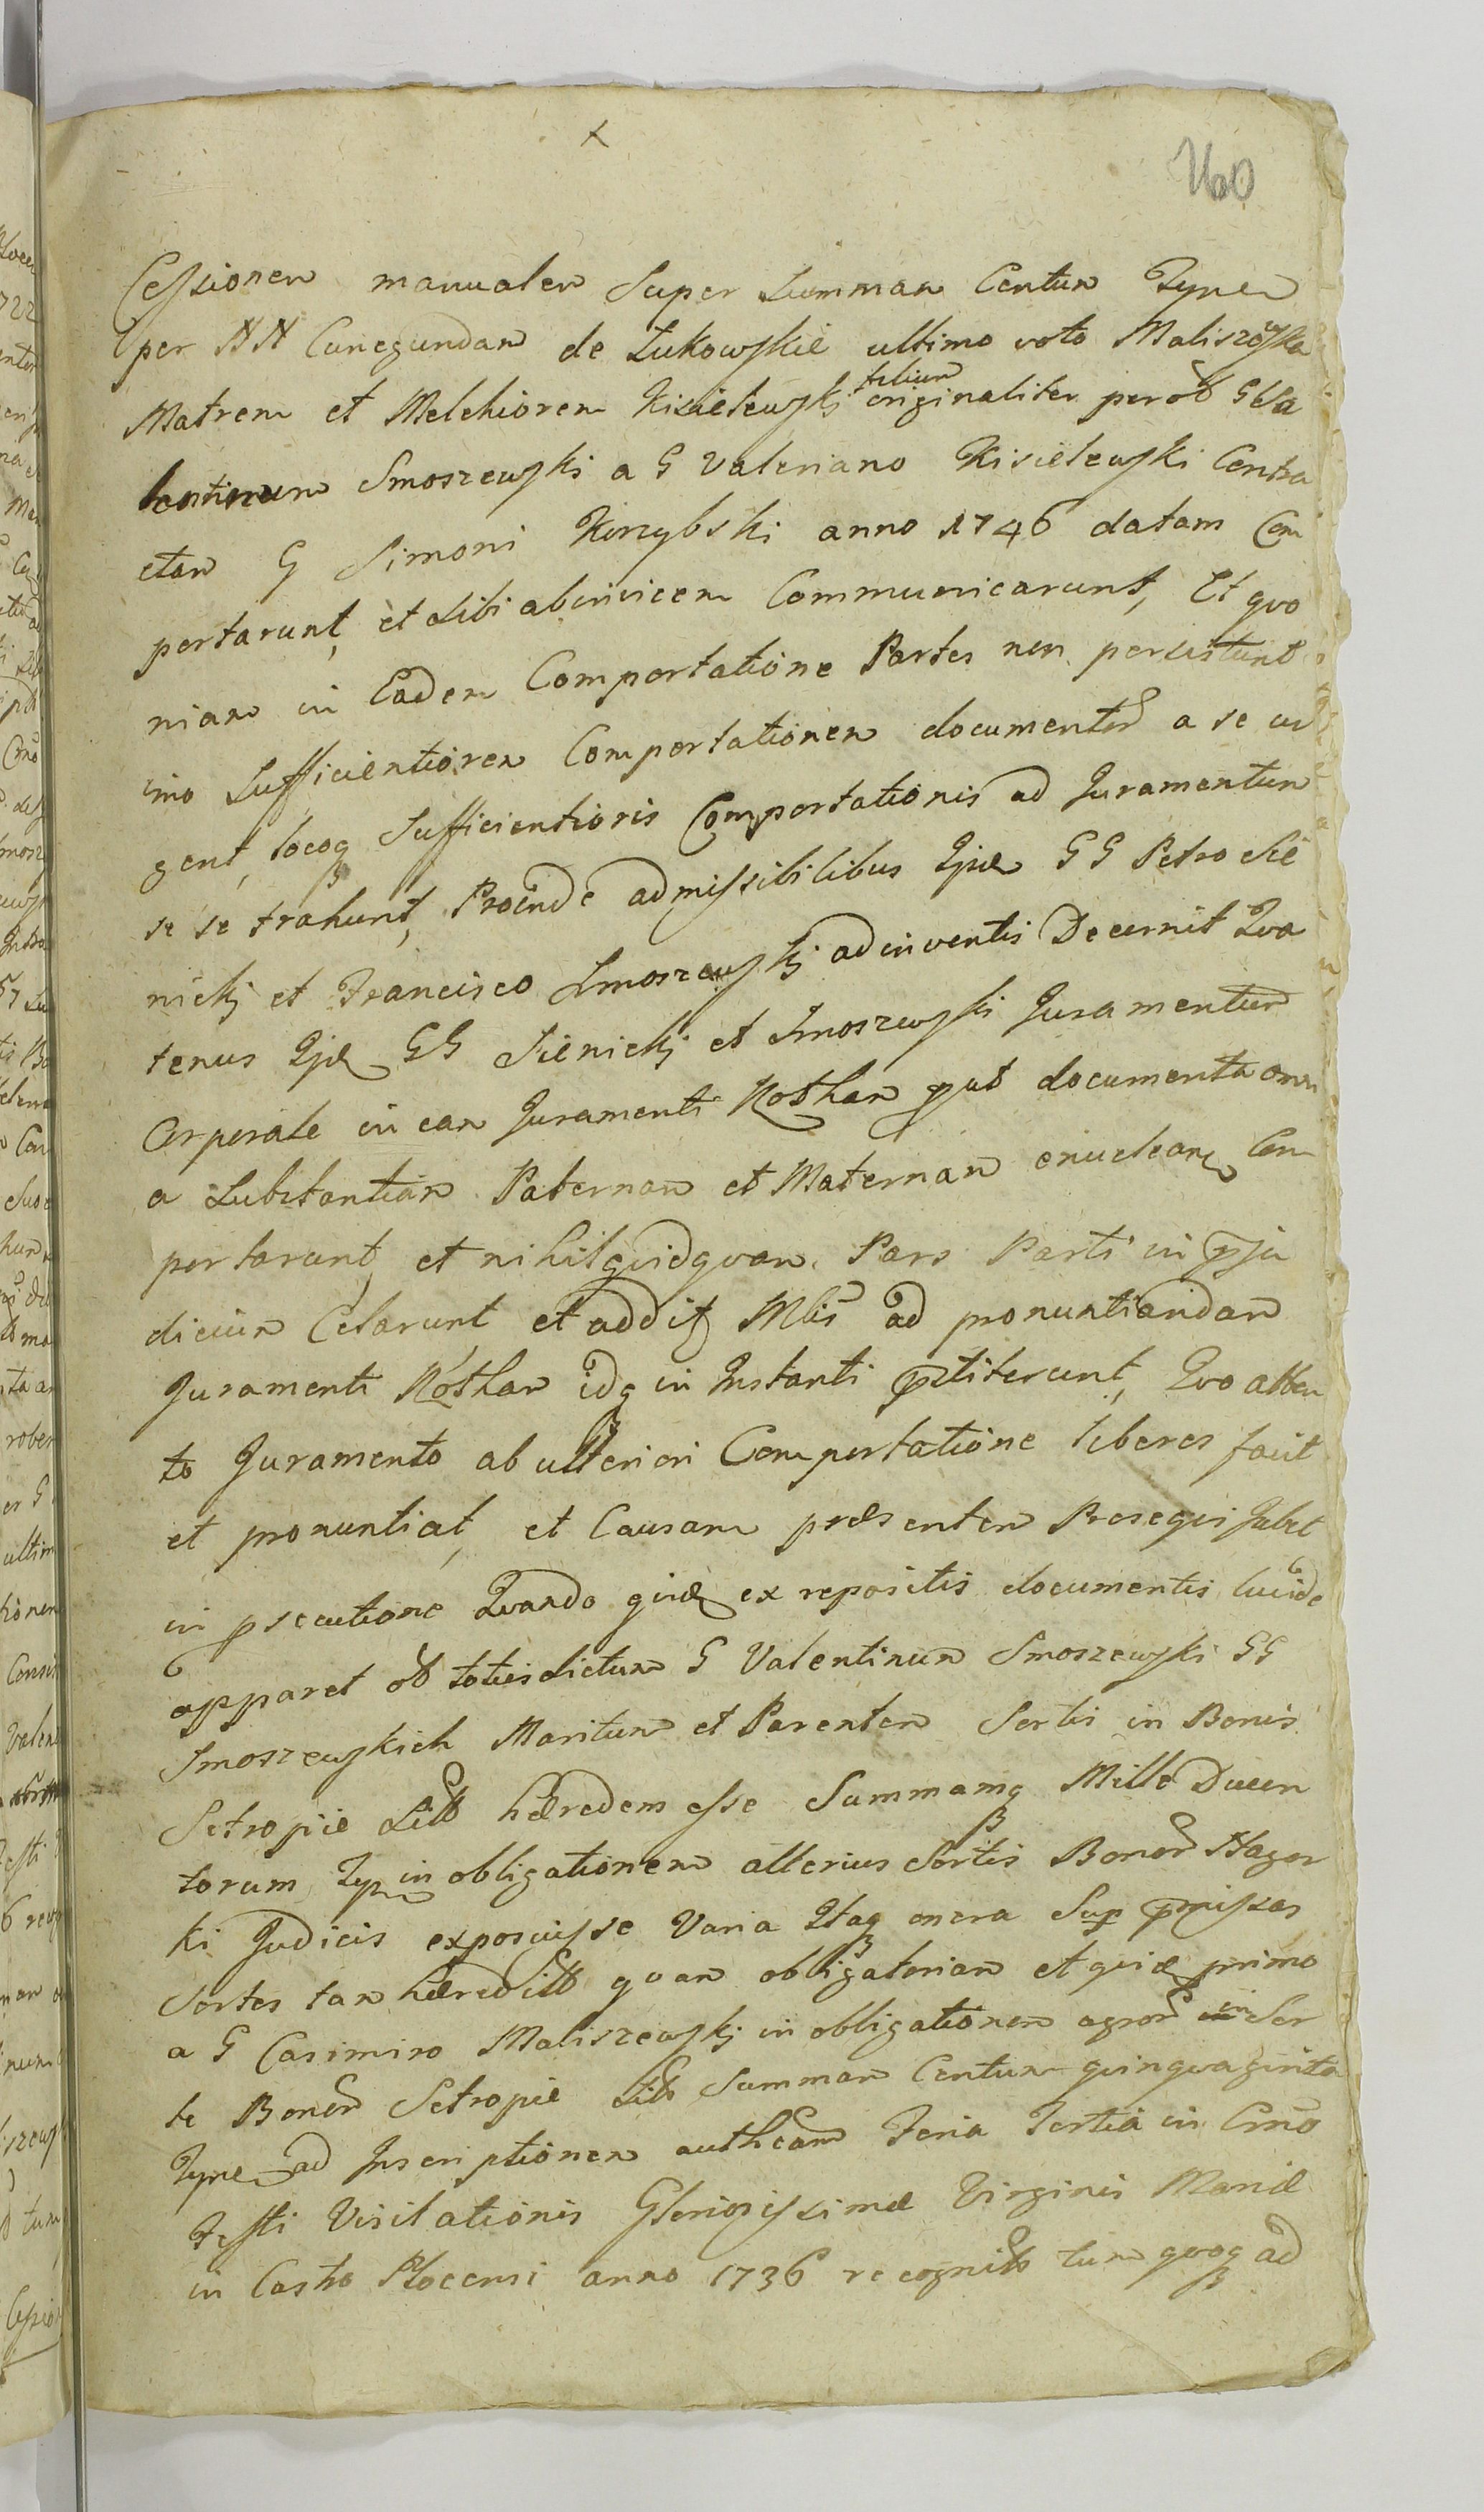 x
760
Cessionem manualem Super Summam Centum Tynf
per NN Cunegundam de Lukowskie ultimo voto Maliszowska
Matrem et Melchiorem Kisielewskj filium originaliter per olt G Va
lentinum Smoszewski a G Valeriano Kisielewski Contra
ctam G Simoni Korzybski anno 1746 datam Com
portarunt, et Sibi abinvicem Communicarunt, Et quo
niam in Eadem Comportatione Partes non persistunt
imo Sufficientiorem Comportationem documentor a se ur
gent, locoq Sufficientioris Comportationis ad Juramentum
se se trahunt, Proinde admissibilibus Ijsd GG Petro Sie
nickj et Francisco Smoszewskj adinventis Decernit Qua
tenus Ijd GG Sienickj et Smoszewski Juramentum
Corporale in eam Juramenti Rotham qut documenta omni
a Substantiam Paternam et Maternam enuclean Com
portarunt, et nihil quidquam Pars Parti in pju
dicium Celarunt et addit Mlis ad pronuntiandam
Juramenti Rotham idq in Instanti pstiterunt, Quo atten
to Juramento ab ulteriori Comportatione liberos facit
et pronuntiat, et Causam præsentem Prosequi Jubet
in psecutione Quando quid ex repositis documentis lucide
apparet olt totiesdictum G Valentinum Smoszewski GG
Smoszewskich Maritum et Parentem Sortis in Bonis
Setropie Litt hæredem esse Summamq Mille Ducen
torum Typ in obligationem alterius Sortis Bonor Nagor
ki Judicis exposuisse Varia Itaq onera Sup pmissas
Sortes tam hæredit quam obligatoriam et quid primo
a G Casimiro Maliszewskj in obligationem agror in Sor
te Bonor Setropie Litt Summam Centum quinquaginta
Tynf ad Inscriptionem autheam Feria Tertia in Crno
Festi Visitationis Gloriosissimæ Virginis Mariæ
in Castro Plocensi anno 1736 recognit tum quoq ad